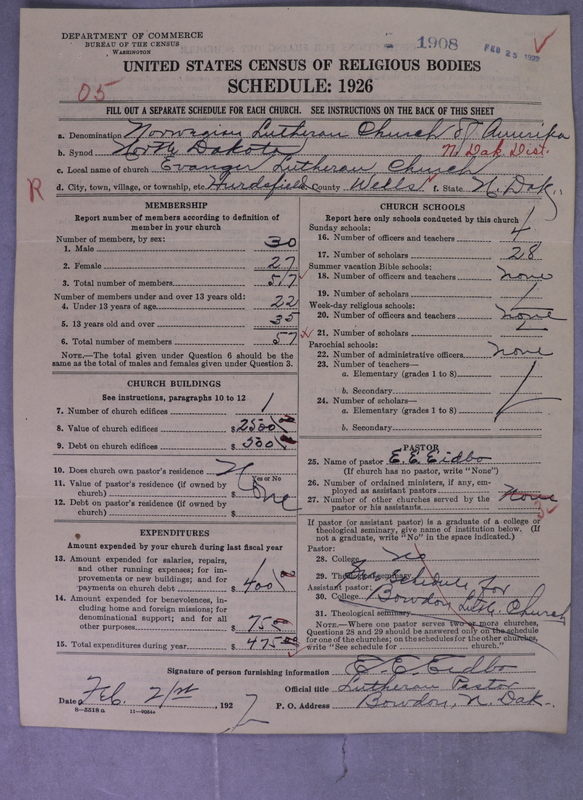 DEPARTMENT OF COMMERCE
BUREAU OF THE CENSUS
WASHINGTON
1908
FEB 25
UNITED STATES CENSUS OF RELIGIOUS BODIES
05
SCHEDULE: 1926
FILL OUT A SEPARATE SCHEDULE FOR EACH CHURCH. SEE INSTRUCTIONS ON THE BACK OF THIS SHEET
a. Denomination Norwegian Lutheran Church of Amerika
b. Synod North Dakota N. Dak Dist.
c. Local name of church Evanger Lutheran Church
R d. City, town, village, or township, etc. Hurdsfield County Wells f. State N. Dak.
MEMBERSHIP
Report number of members according to definition of member in your church
Number of members, by sex:
1. Male 30
2. Female 27
3. Total number of members 57
Number of members under and over 13 years old:
4. Under 13 years of age 22
5. 13 years old and over 35
6. Total number of members 57
NOTE.—The total given under Question 6 should be the same as the total of males and females given under Question 3.
CHURCH BUILDINGS
See instructions, paragraphs 10 to 12
7. Number of church edifices 1
8. Value of church edifices $2500
9. Debt on church edifices $500
10. Does church own pastor's residence No
Yes or No
11. Value of pastor's residence (if owned by church) $
12. Debt on pastor's residence (if owned by church) $
None
EXPENDITURES
Amount expended by your church during last fiscal year
13. Amount expended for salaries, repairs, and other running expenses; for improvements or new buildings; and for payments on church debt $400
14. Amount expended for benevolences, including home and foreign missions; for denominational support; and for all other purposes $75
15. Total expenditures during year $475
CHURCH SCHOOLS
Report here only schools conducted by this church
Sunday schools:
16. Number of officers and teachers 4
17. Number of scholars 28
Summer vacation Bible schools:
18. Number of officers and teachers none
19. Number of scholars
Week-day religious schools:
20. Number of officers and teachers none
21. Number of scholars
Parochial schools:
22. Number of administrative officers none
23. Number of teachers—
a. Elementary (grades 1 to 8)
b. Secondary
24. Number of scholars—
a. Elementary (grades 1 to 8)
b. Secondary
PASTOR
25. Name of pastor E. E. Eidbo
(If church has no pastor, write "None")
26. Number of ordained ministers, if any, employed as assistant pastors
27. Number of other churches served by the pastor or his assistants None
If pastor (or assistant pastor) is a graduate of a college or theological seminary, give name of institution below. (If not a graduate, write "No" in the space indicated.)
Pastor:
28. College No
29. Theological seminary
See schedule for
Assistant pastor:
30. College Bowdon Luth. Church
31. Theological seminary
NOTE.—Where one pastor serves two or more churches, Questions 28 and 29 should be answered only on the schedule for one of the churches; on the schedules for the other churches, write "See schedule for church."
Signature of person furnishing information E. E. Eidbo
Official title Lutheran Pastor
Date Feb. 21st, 1927 P. O. Address Bowdon, N. Dak.
8—5518 a